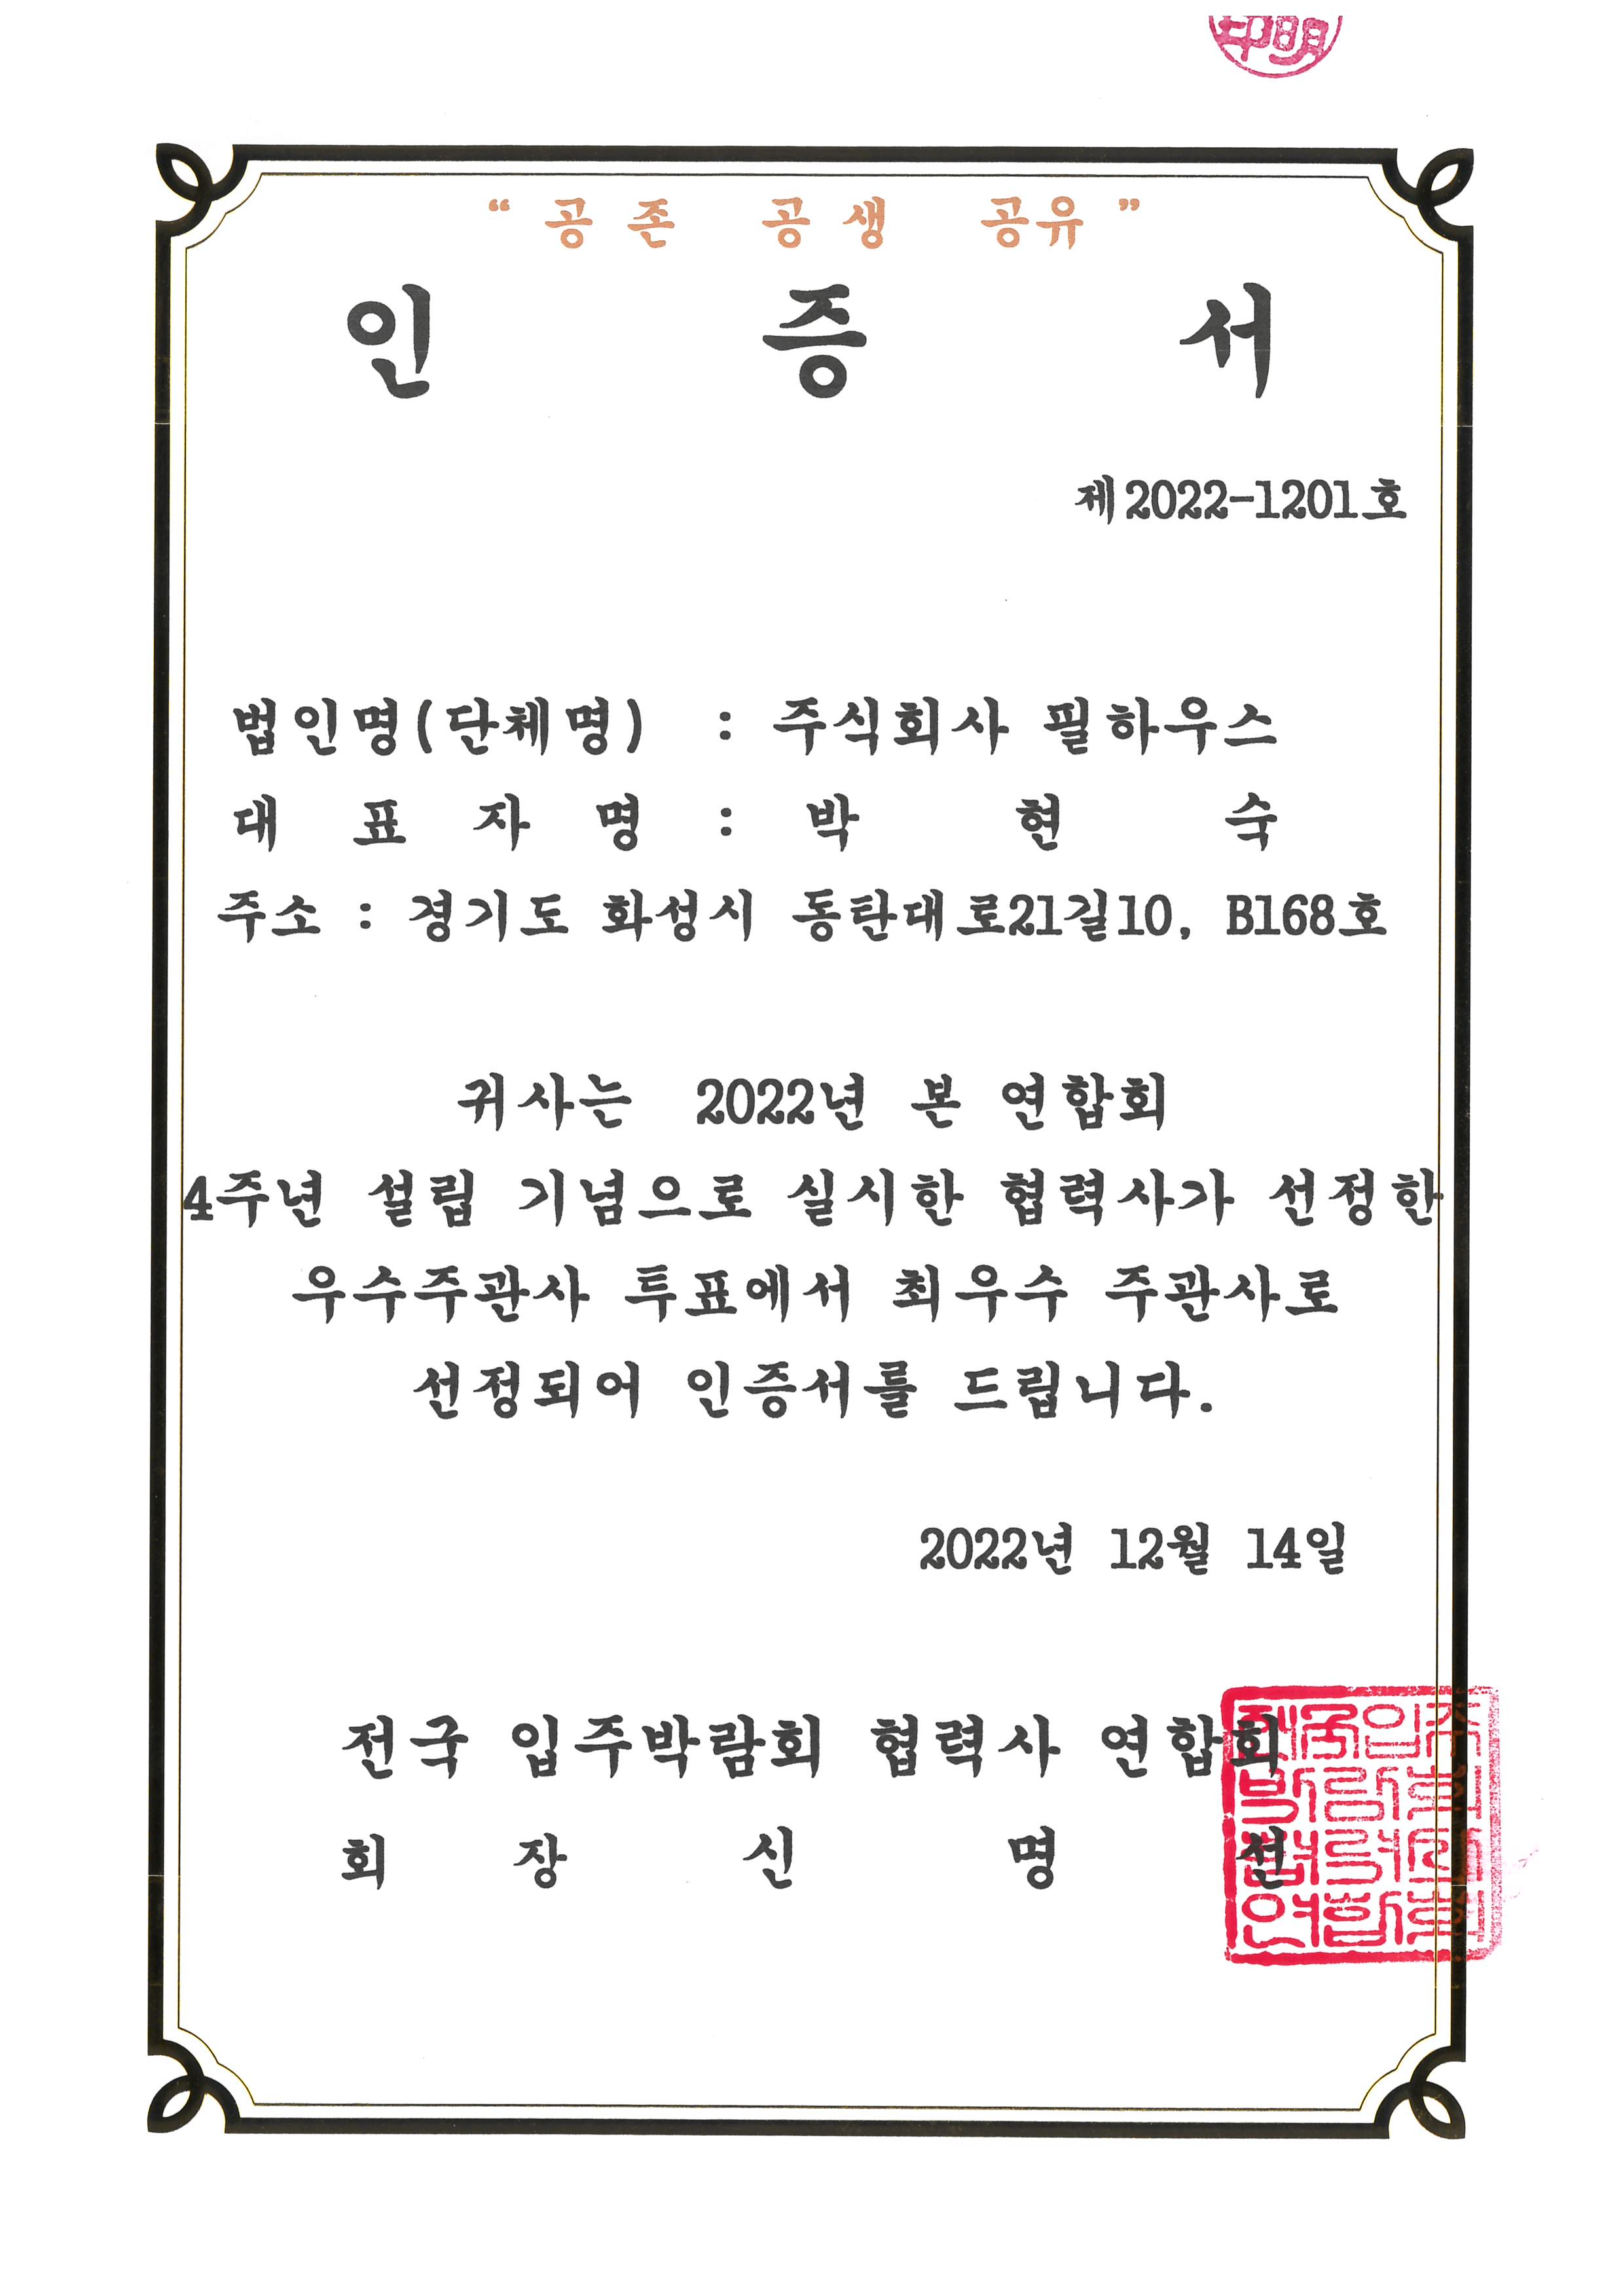 “ 공 존 공 생 공유 ”
인 증 서
제2022-1201호
법인명(단체명) : 주식회사 필하우스
대 표 자 명 : 박 현 숙
주소 : 경기도 화성시 동탄대로21길10, B168호
귀사는 2022년 본 연합회
4주년 설립 기념으로 실시한 협력사가 선정한
우수주관사 투표에서 최우수 주관사로
선정되어 인증서를 드립니다.
2022년 12월 14일
전국 입주박람회 협력사 연합회
회 장 신 명 선